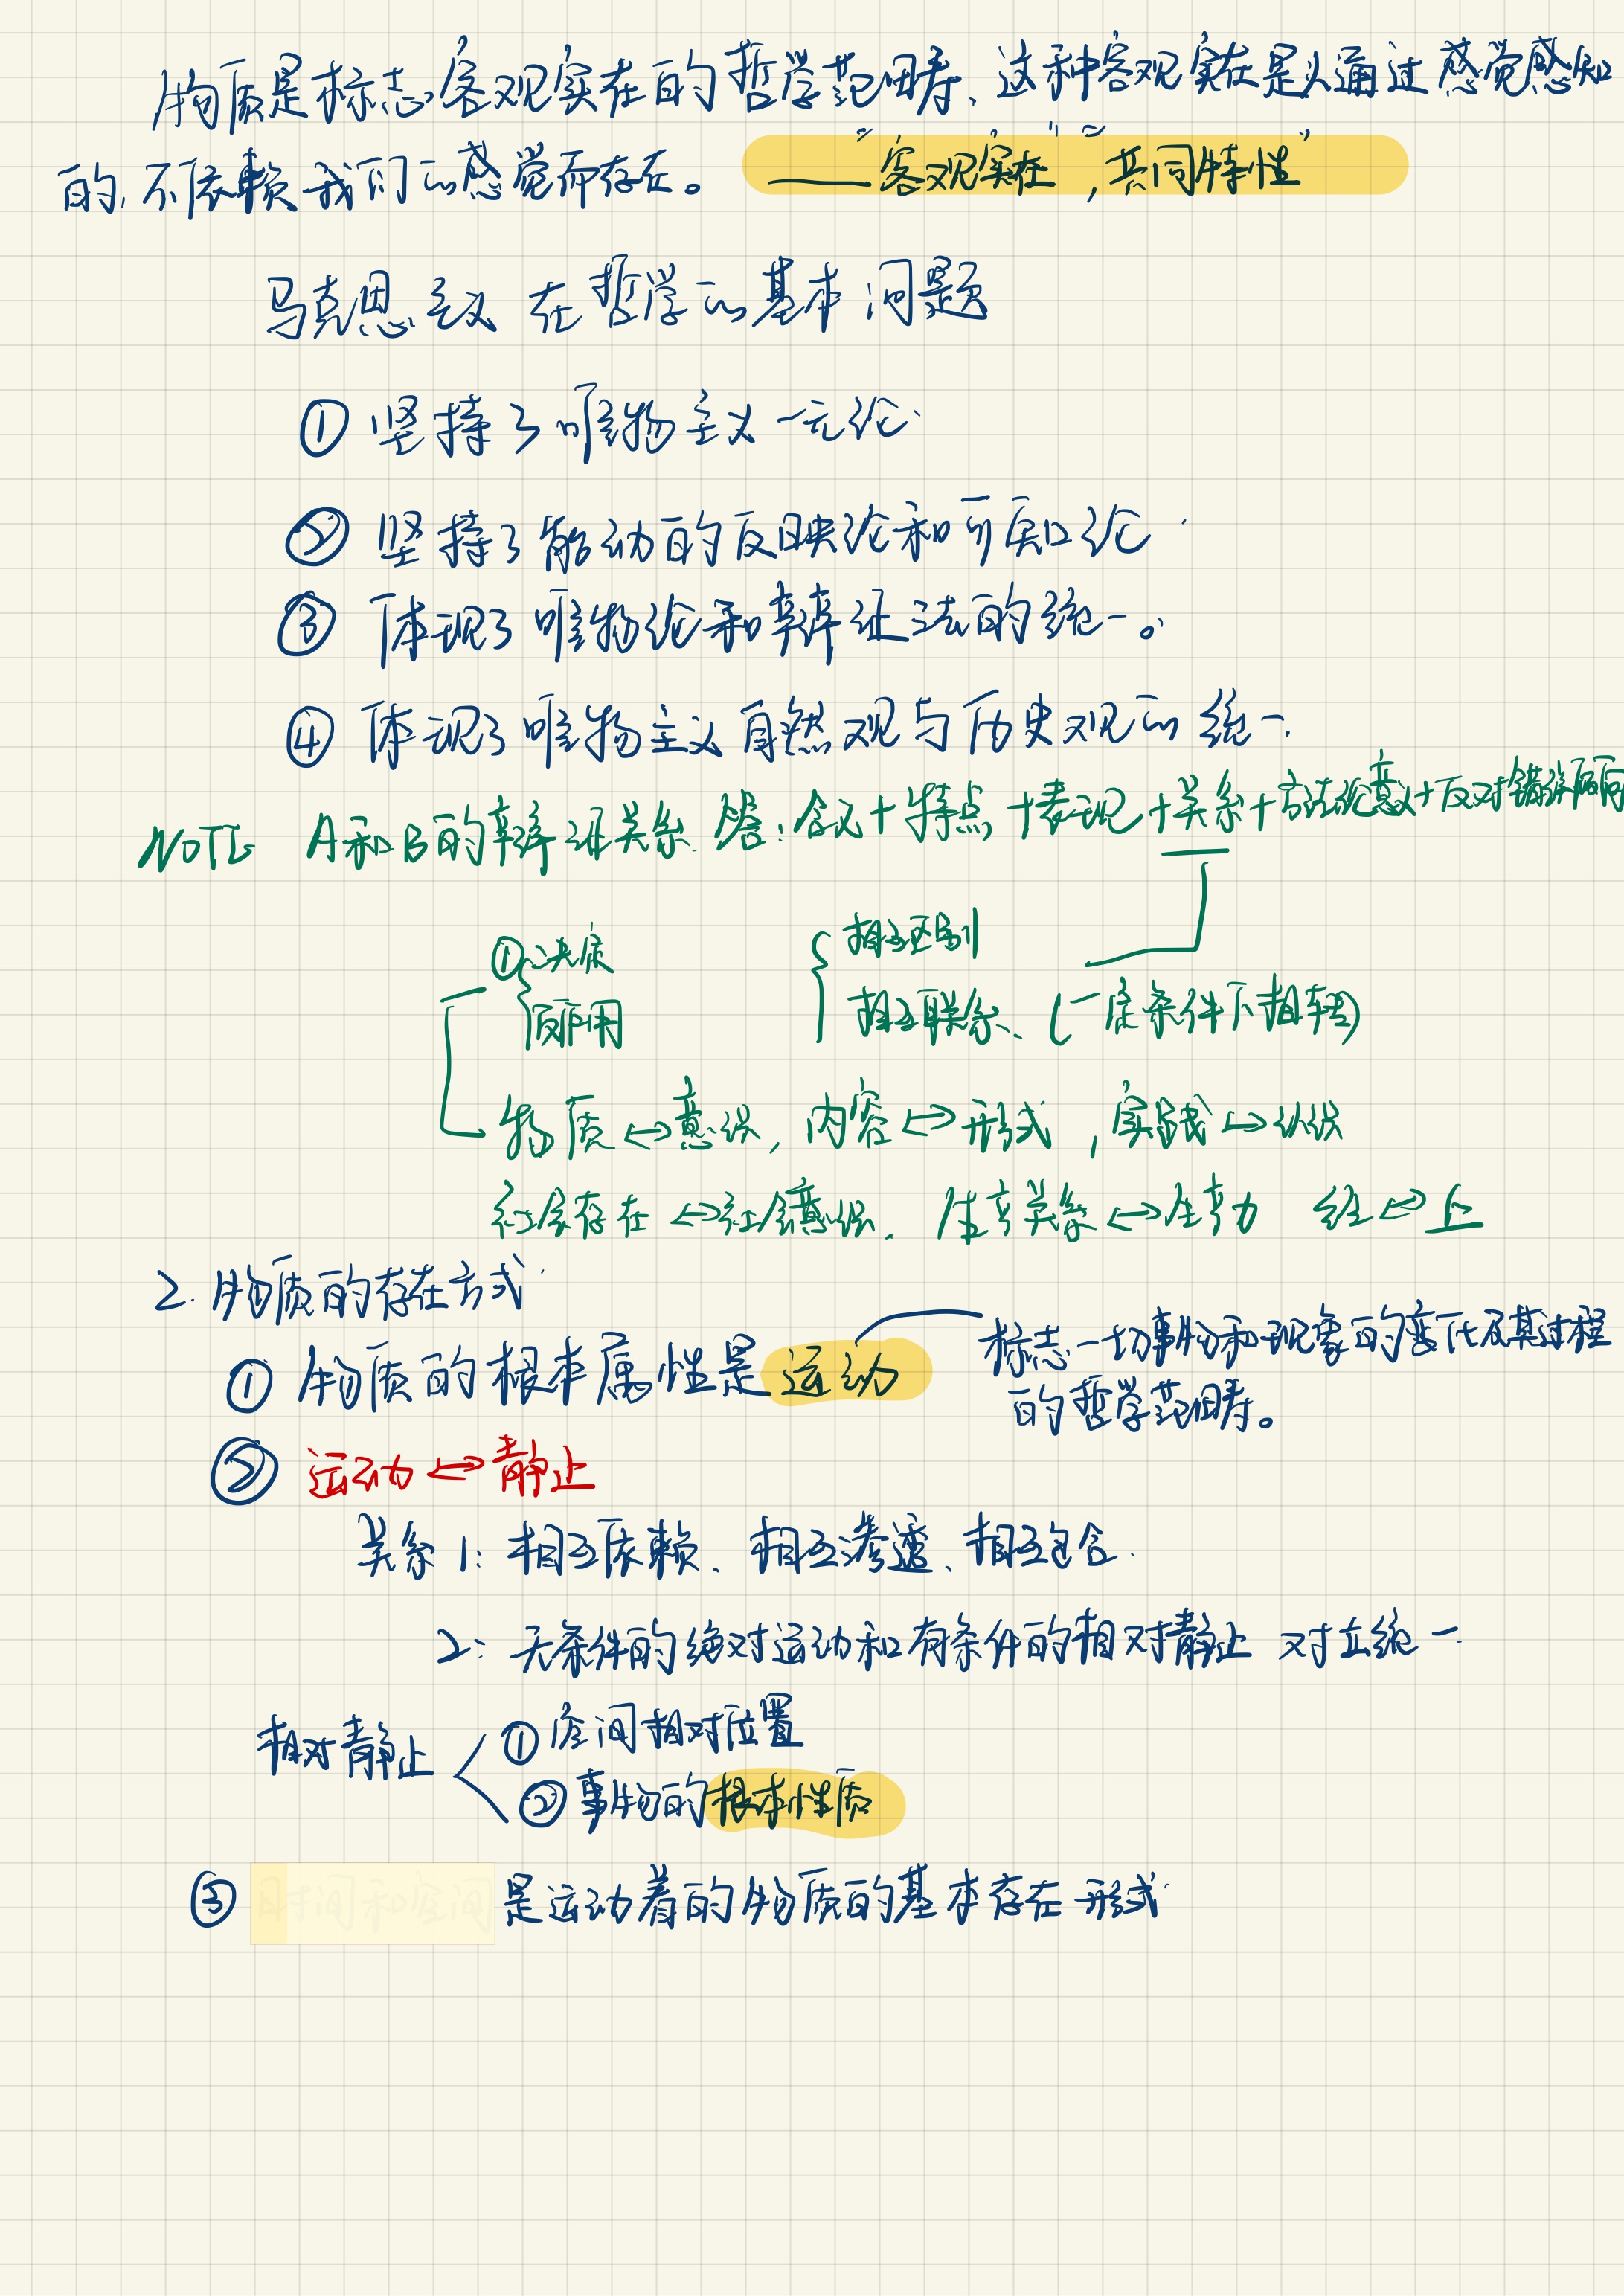 物质是标志客观实在的哲学范畴、这种客观实在是人通过感觉感知
的,不依赖我们的感觉而存在。 ——“客观实在”,“共同特性”
马克思主义 在哲学的基本问题
① 坚持了唯物主义一元论.
② 坚持了能动的反映论和可知论.
③ 体现了唯物论和辩证法的统一。
④ 体现了唯物主义自然观与历史观的统一.
NOTE A和B的辩证关系. 答:含义+特点+表现+关系+方法论意义+反对错误倾向
①决定
反作用
相互区别
相互联系、(一定条件下相转)
物质↔意识, 内容↔形式, 实践↔认识
社会存在↔社会意识. 生产关系↔生产力 经↔上
2. 物质的存在方式.
① 物质的根本属性是运动
标志一切事物和现象的变化及其过程
的哲学范畴。
② 运动↔静止
关系 1: 相互依赖、相互渗透、相互包含.
2: 无条件的绝对运动和有条件的相对静止 对立统一.
相对静止
① 空间相对位置
② 事物的根本性质
③ 时间和空间 是运动着的物质的基本存在形式.